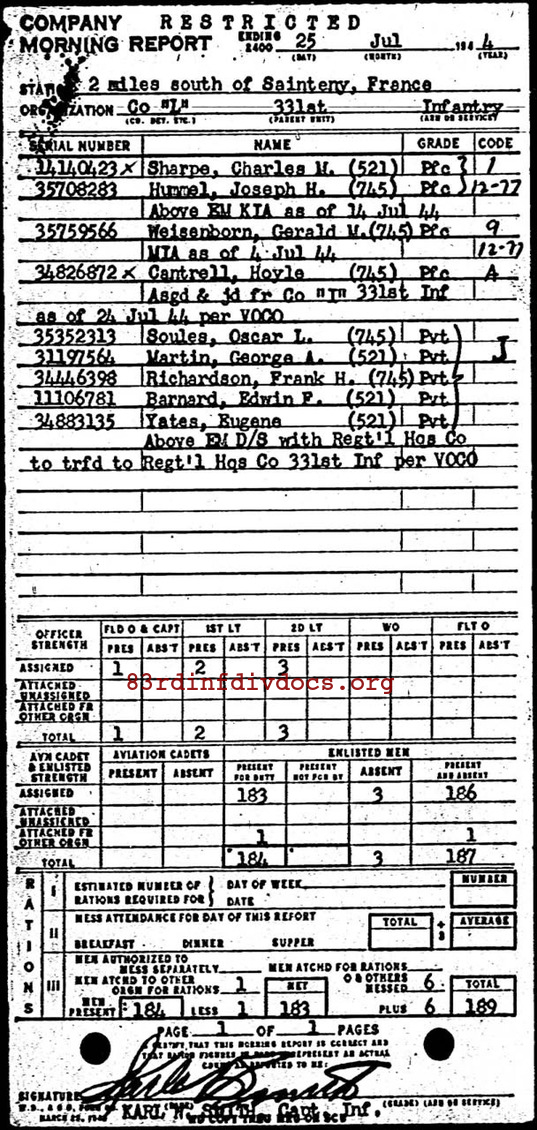 COMPANY RESTRICTED
MORNING REPORT ENDING 2400 25 Jul 194 4
(DAY) (MONTH) (YEAR)
STATION 2 miles south of Sainteny, France
ORGANIZATION Co "L" 331st Infantry
(CO. DET. ETC.) (PARENT UNIT) (ARM OR SERVICE)
SERIAL NUMBER NAME GRADE CODE
14140423 x Sharpe, Charles M. (521) Pfc } 1
35708283 Hummel, Joseph H. (745) Pfc } 12-77
Above EM KIA as of 14 Jul 44
35759566 Weisenborn, Gerald M. (745) Pfc 9
MIA as of 4 Jul 44 12-77
34826872 x Cantrell, Hoyle (745) Pfc A
Asgd & jd fr Co "I" 331st Inf
as of 24 Jul 44 per VOCO
35352313 Soules, Oscar L. (745) Pvt
31197564 Martin, George A. (521) Pvt J
34446398 Richardson, Frank H. (745) Pvt
11106781 Barnard, Edwin F. (521) Pvt
34883135 Yates, Eugene (521) Pvt
Above EM D/S with Regt'l Hqs Co
to trfd to Regt'l Hqs Co 331st Inf per VOCO
OFFICER STRENGTH FLD O & CAPT 1ST LT 2D LT WO FLT O
PRES ABS'T PRES ABS'T PRES ABS'T PRES ABS'T PRES ABS'T
ASSIGNED 1 2 3
ATTACHED UNASSIGNED
83rdinfdivdocs.org
ATTACHED FR OTHER ORGN
TOTAL 1 2 3
AVN CADET & ENLISTED STRENGTH AVIATION CADETS ENLISTED MEN
PRESENT ABSENT PRESENT FOR DUTY PRESENT NOT FOR DY ABSENT PRESENT AND ABSENT
ASSIGNED 183 3 186
ATTACHED UNASSIGNED
ATTACHED FR OTHER ORGN 1 1
TOTAL 184 3 187
RATIONS
I ESTIMATED NUMBER OF RATIONS REQUIRED FOR { DAY OF WEEK NUMBER
DATE
II MESS ATTENDANCE FOR DAY OF THIS REPORT TOTAL ÷ 3 AVERAGE
BREAKFAST DINNER SUPPER
III MEN AUTHORIZED TO MESS SEPARATELY MEN ATCHD FOR RATIONS
MEN ATCHD TO OTHER ORGN FOR RATIONS 1 NET & OTHERS MESSED 6 TOTAL
MEN PRESENT 184 LESS 1 183 PLUS 6 189
PAGE 1 OF 1 PAGES
I CERTIFY THAT THIS MORNING REPORT IS CORRECT AND
SIGNATURE
KARL N. SMITH, Capt. Inf. (GRADE) (ARM OR SERVICE)